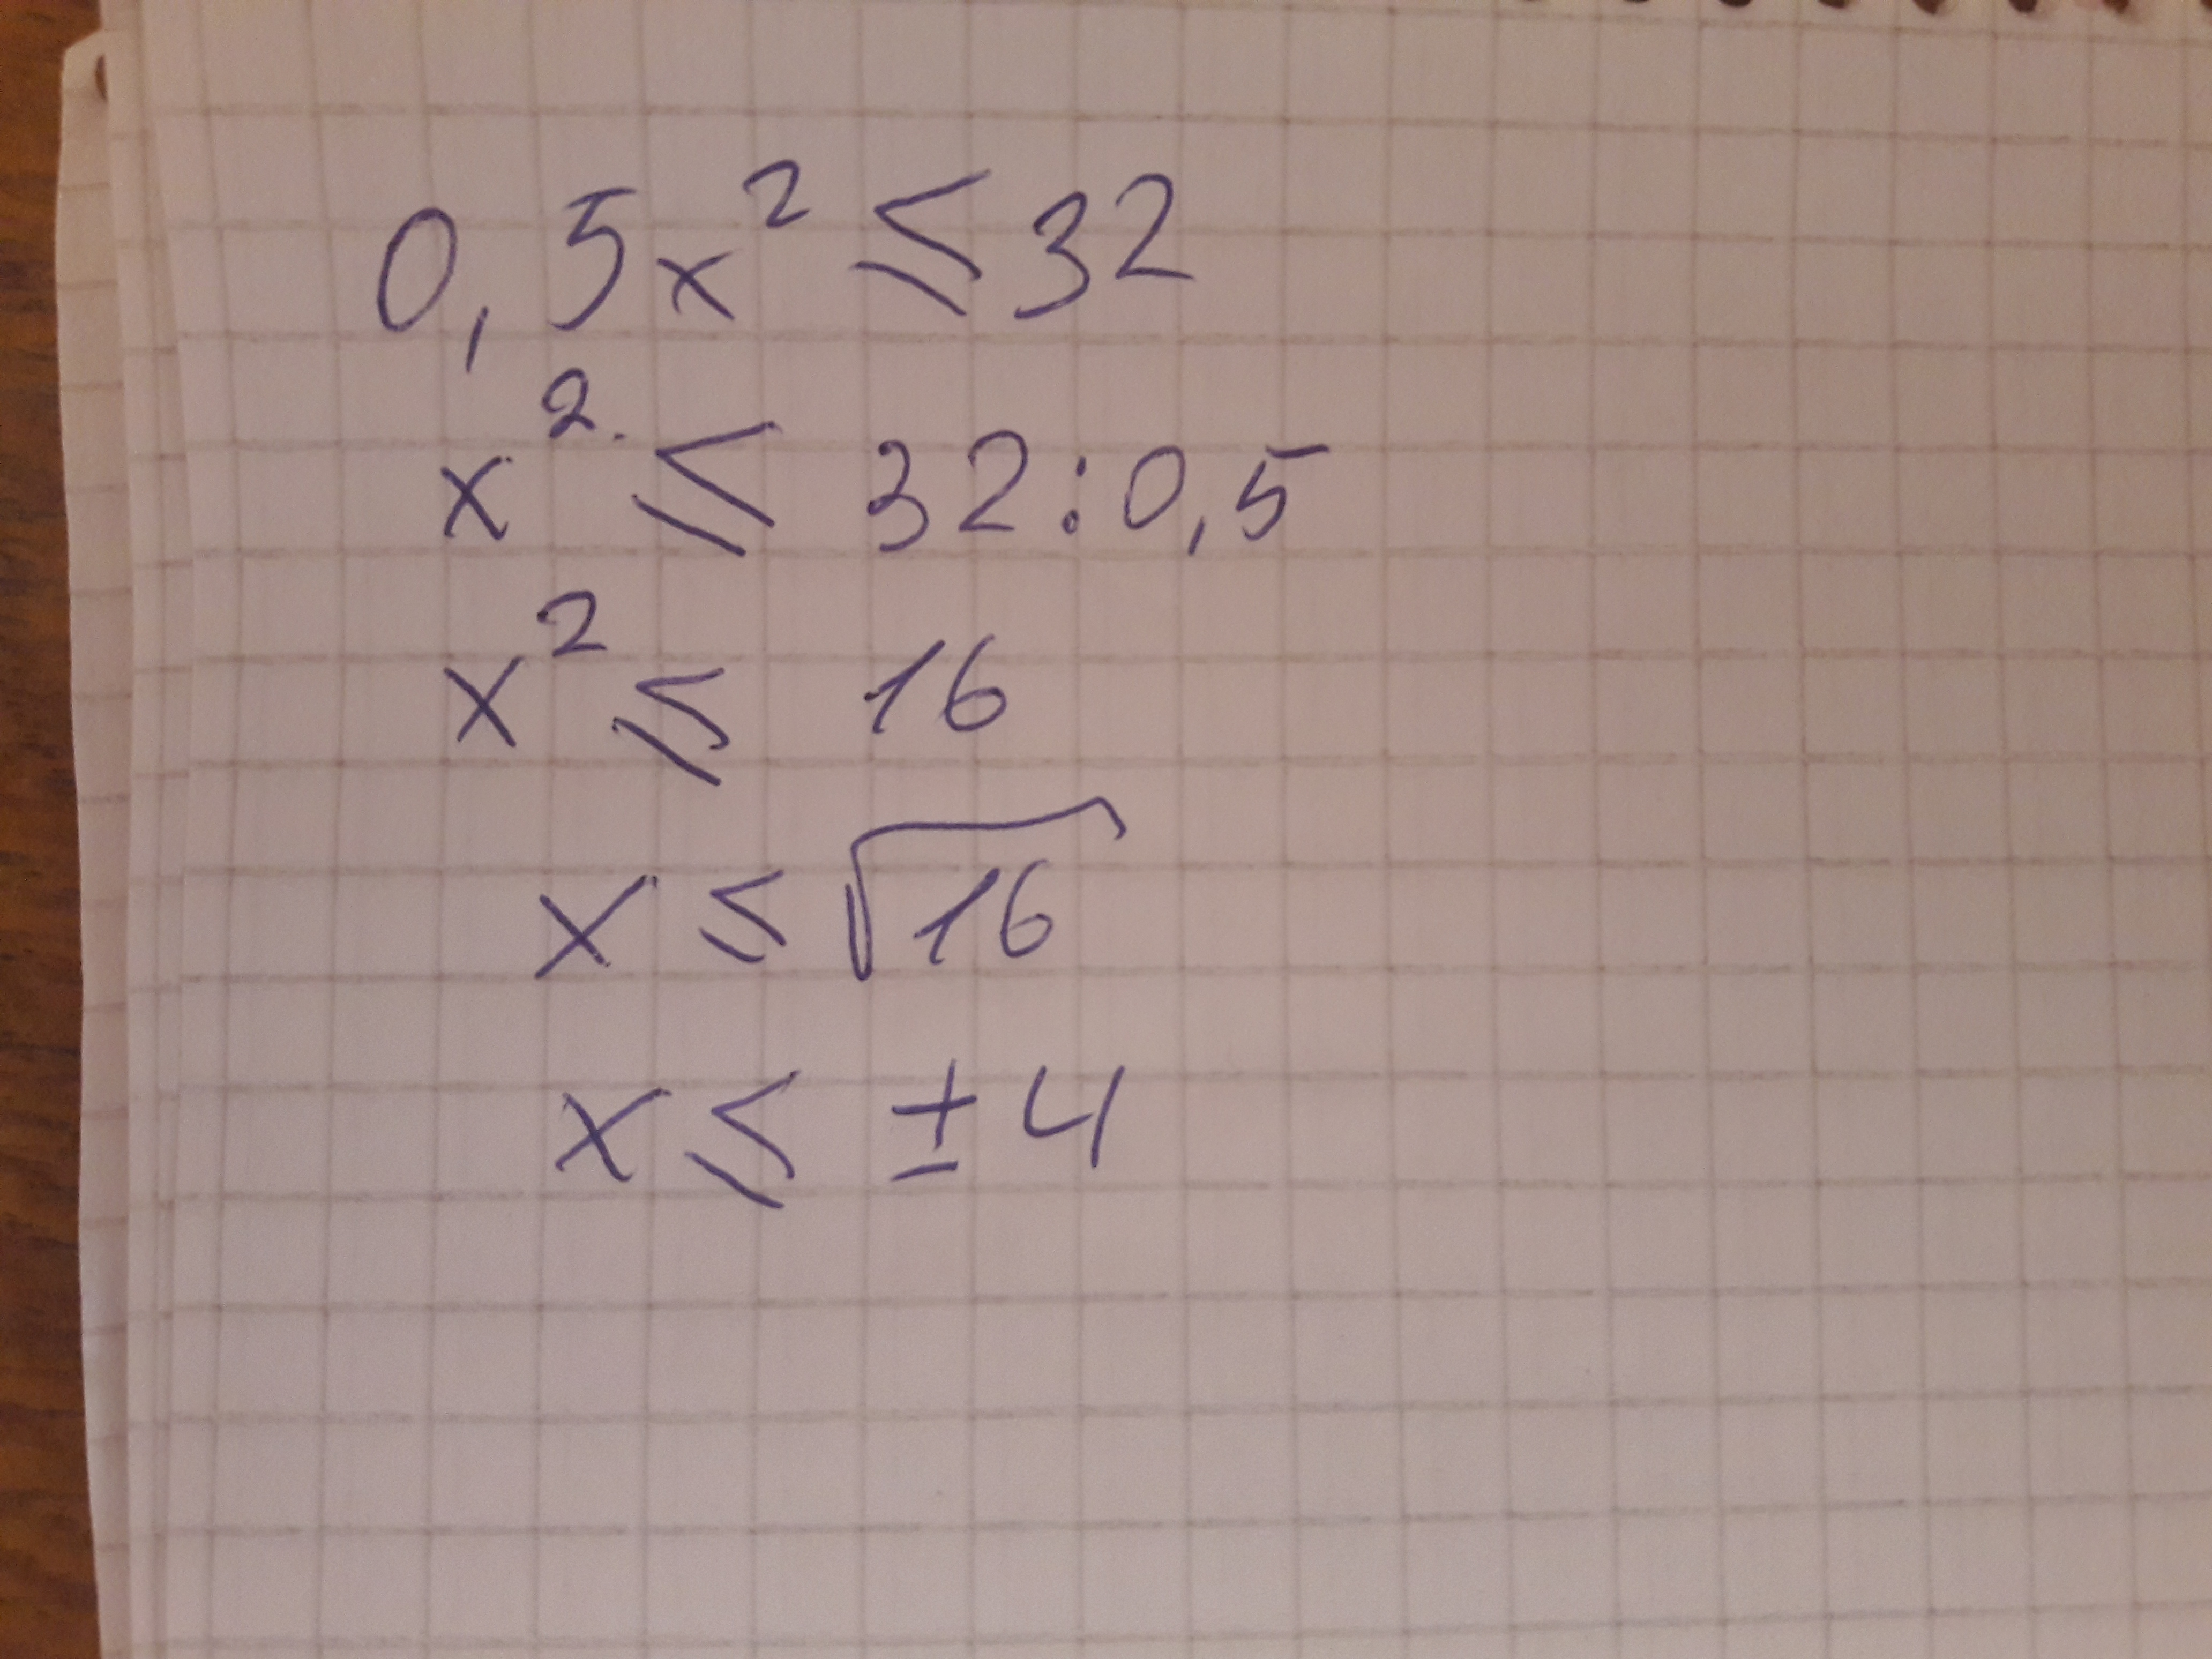 0,5x² ≤ 32
x². ≤ 32:0,5
x² ≤ 16
x ≤ √16
x ≤ ±4